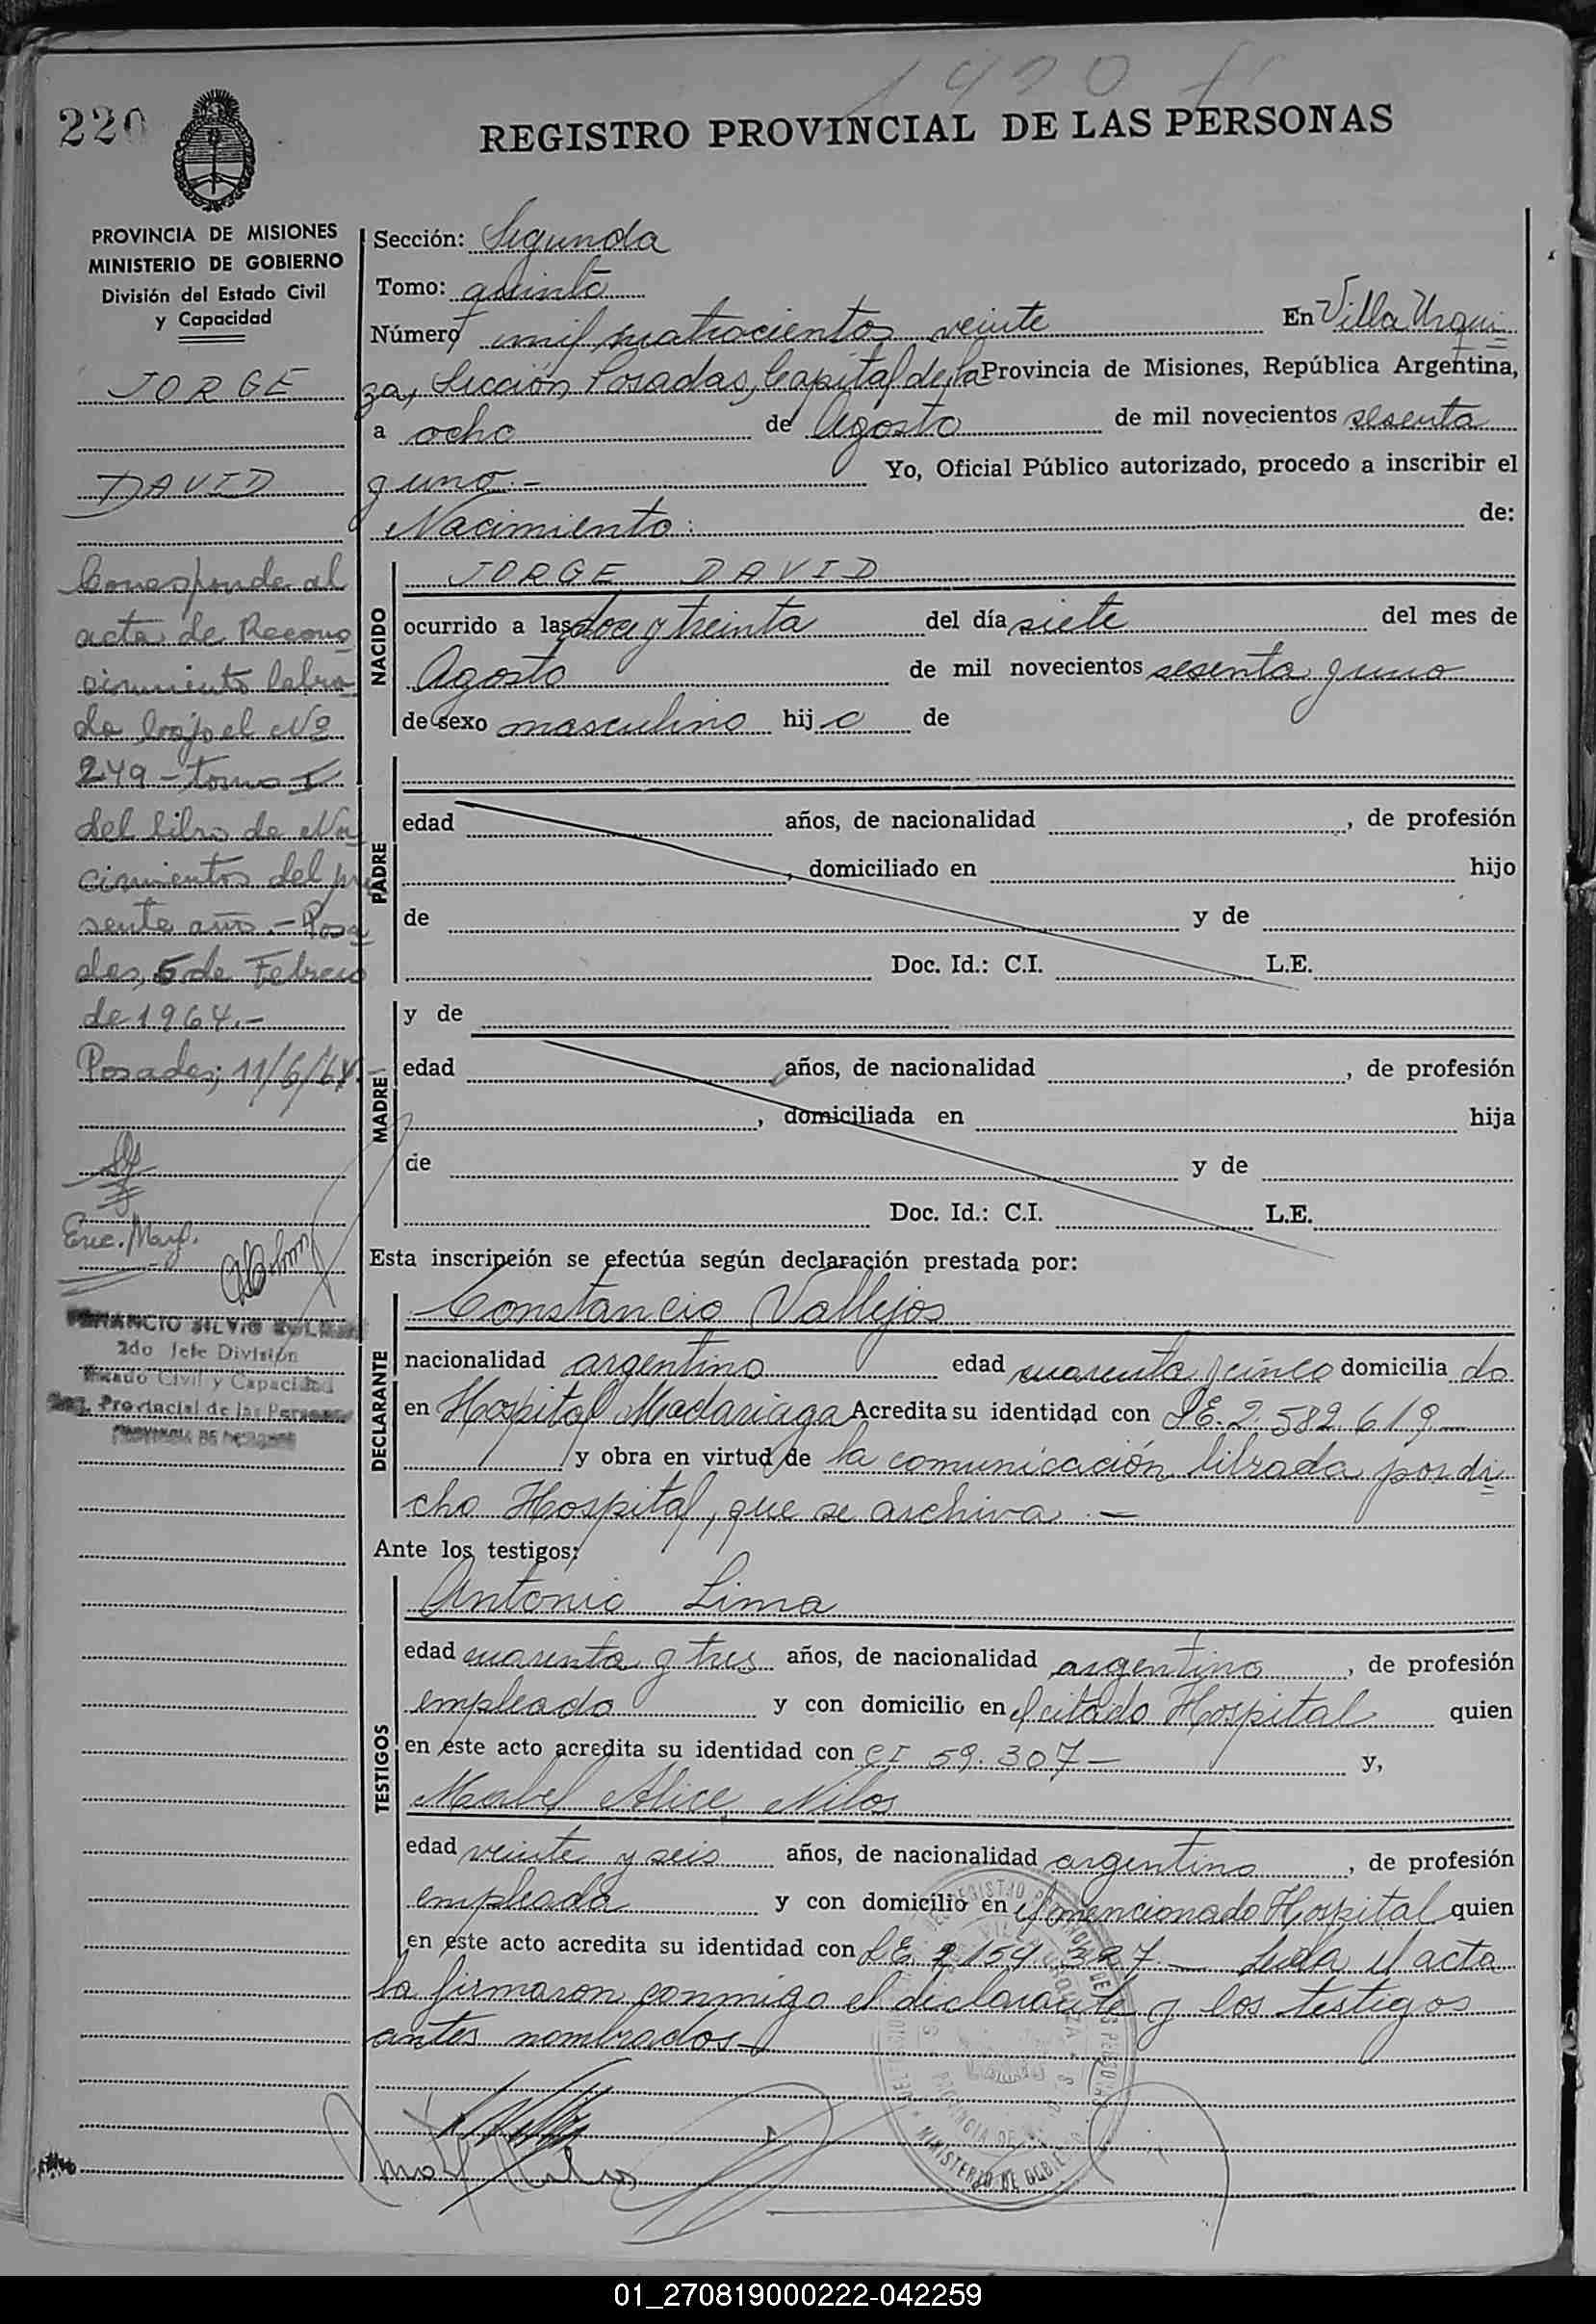 1420
220
REGISTRO PROVINCIAL DE LAS PERSONAS
PROVINCIA DE MISIONES
MINISTERIO DE GOBIERNO
División del Estado Civil
y Capacidad
JORGE
DAVID
Corresponde al
acta de Recono
cimiento labra
do bajo el Nº
249 - tomo I
del libro de Na
cimientos del pre
sente año. - Posa
das, 5 de Febrero
de 1964.-
Posadas; 11/6/64.
Enc. May.
SILVIO
2do Jefe División
Estado Civil y Capacidad
Reg. Provincial de las Personas
PROVINCIA DE MISIONES
Sección: Segunda
Tomo: quinto
Número mil cuatrocientos veinte En Villa Urqui
za, Sección Posadas, Capital de la Provincia de Misiones, República Argentina,
a ocho de Agosto de mil novecientos sesenta
y uno.- Yo, Oficial Público autorizado, procedo a inscribir el
Nacimiento: de:
NACIDO
JORGE DAVID
ocurrido a las doce y treinta del día siete del mes de
Agosto de mil novecientos sesenta y uno
de sexo masculino hij o de
PADRE
edad años, de nacionalidad , de profesión
, domiciliado en hijo
de y de
Doc. Id.: C.I. L.E.
MADRE
y de
edad años, de nacionalidad , de profesión
, domiciliada en hija
de y de
Doc. Id.: C.I. L.E.
Esta inscripción se efectúa según declaración prestada por:
DECLARANTE
Constancio Vallejos
nacionalidad argentino edad cuarenta y cinco domicilia do
en Hospital Madariaga Acredita su identidad con L.E. 2.582.619
y obra en virtud de la comunicación librada por di
cho Hospital, que se archiva.-
Ante los testigos:
TESTIGOS
Antonio Lima
edad cuarenta y tres años, de nacionalidad argentino , de profesión
empleado y con domicilio en el citado Hospital quien
en este acto acredita su identidad con CI 59.307- y,
Mabel Alice Nilos
edad veinte y seis años, de nacionalidad argentina , de profesión
empleada y con domicilio en el mencionado Hospital quien
en este acto acredita su identidad con L.E. 2.154.327.- Leida el acta
la firmaron conmigo el declarante y los testigos
antes nombrados-
MINISTERIO DE GOBIERNO
01_270819000222-042259